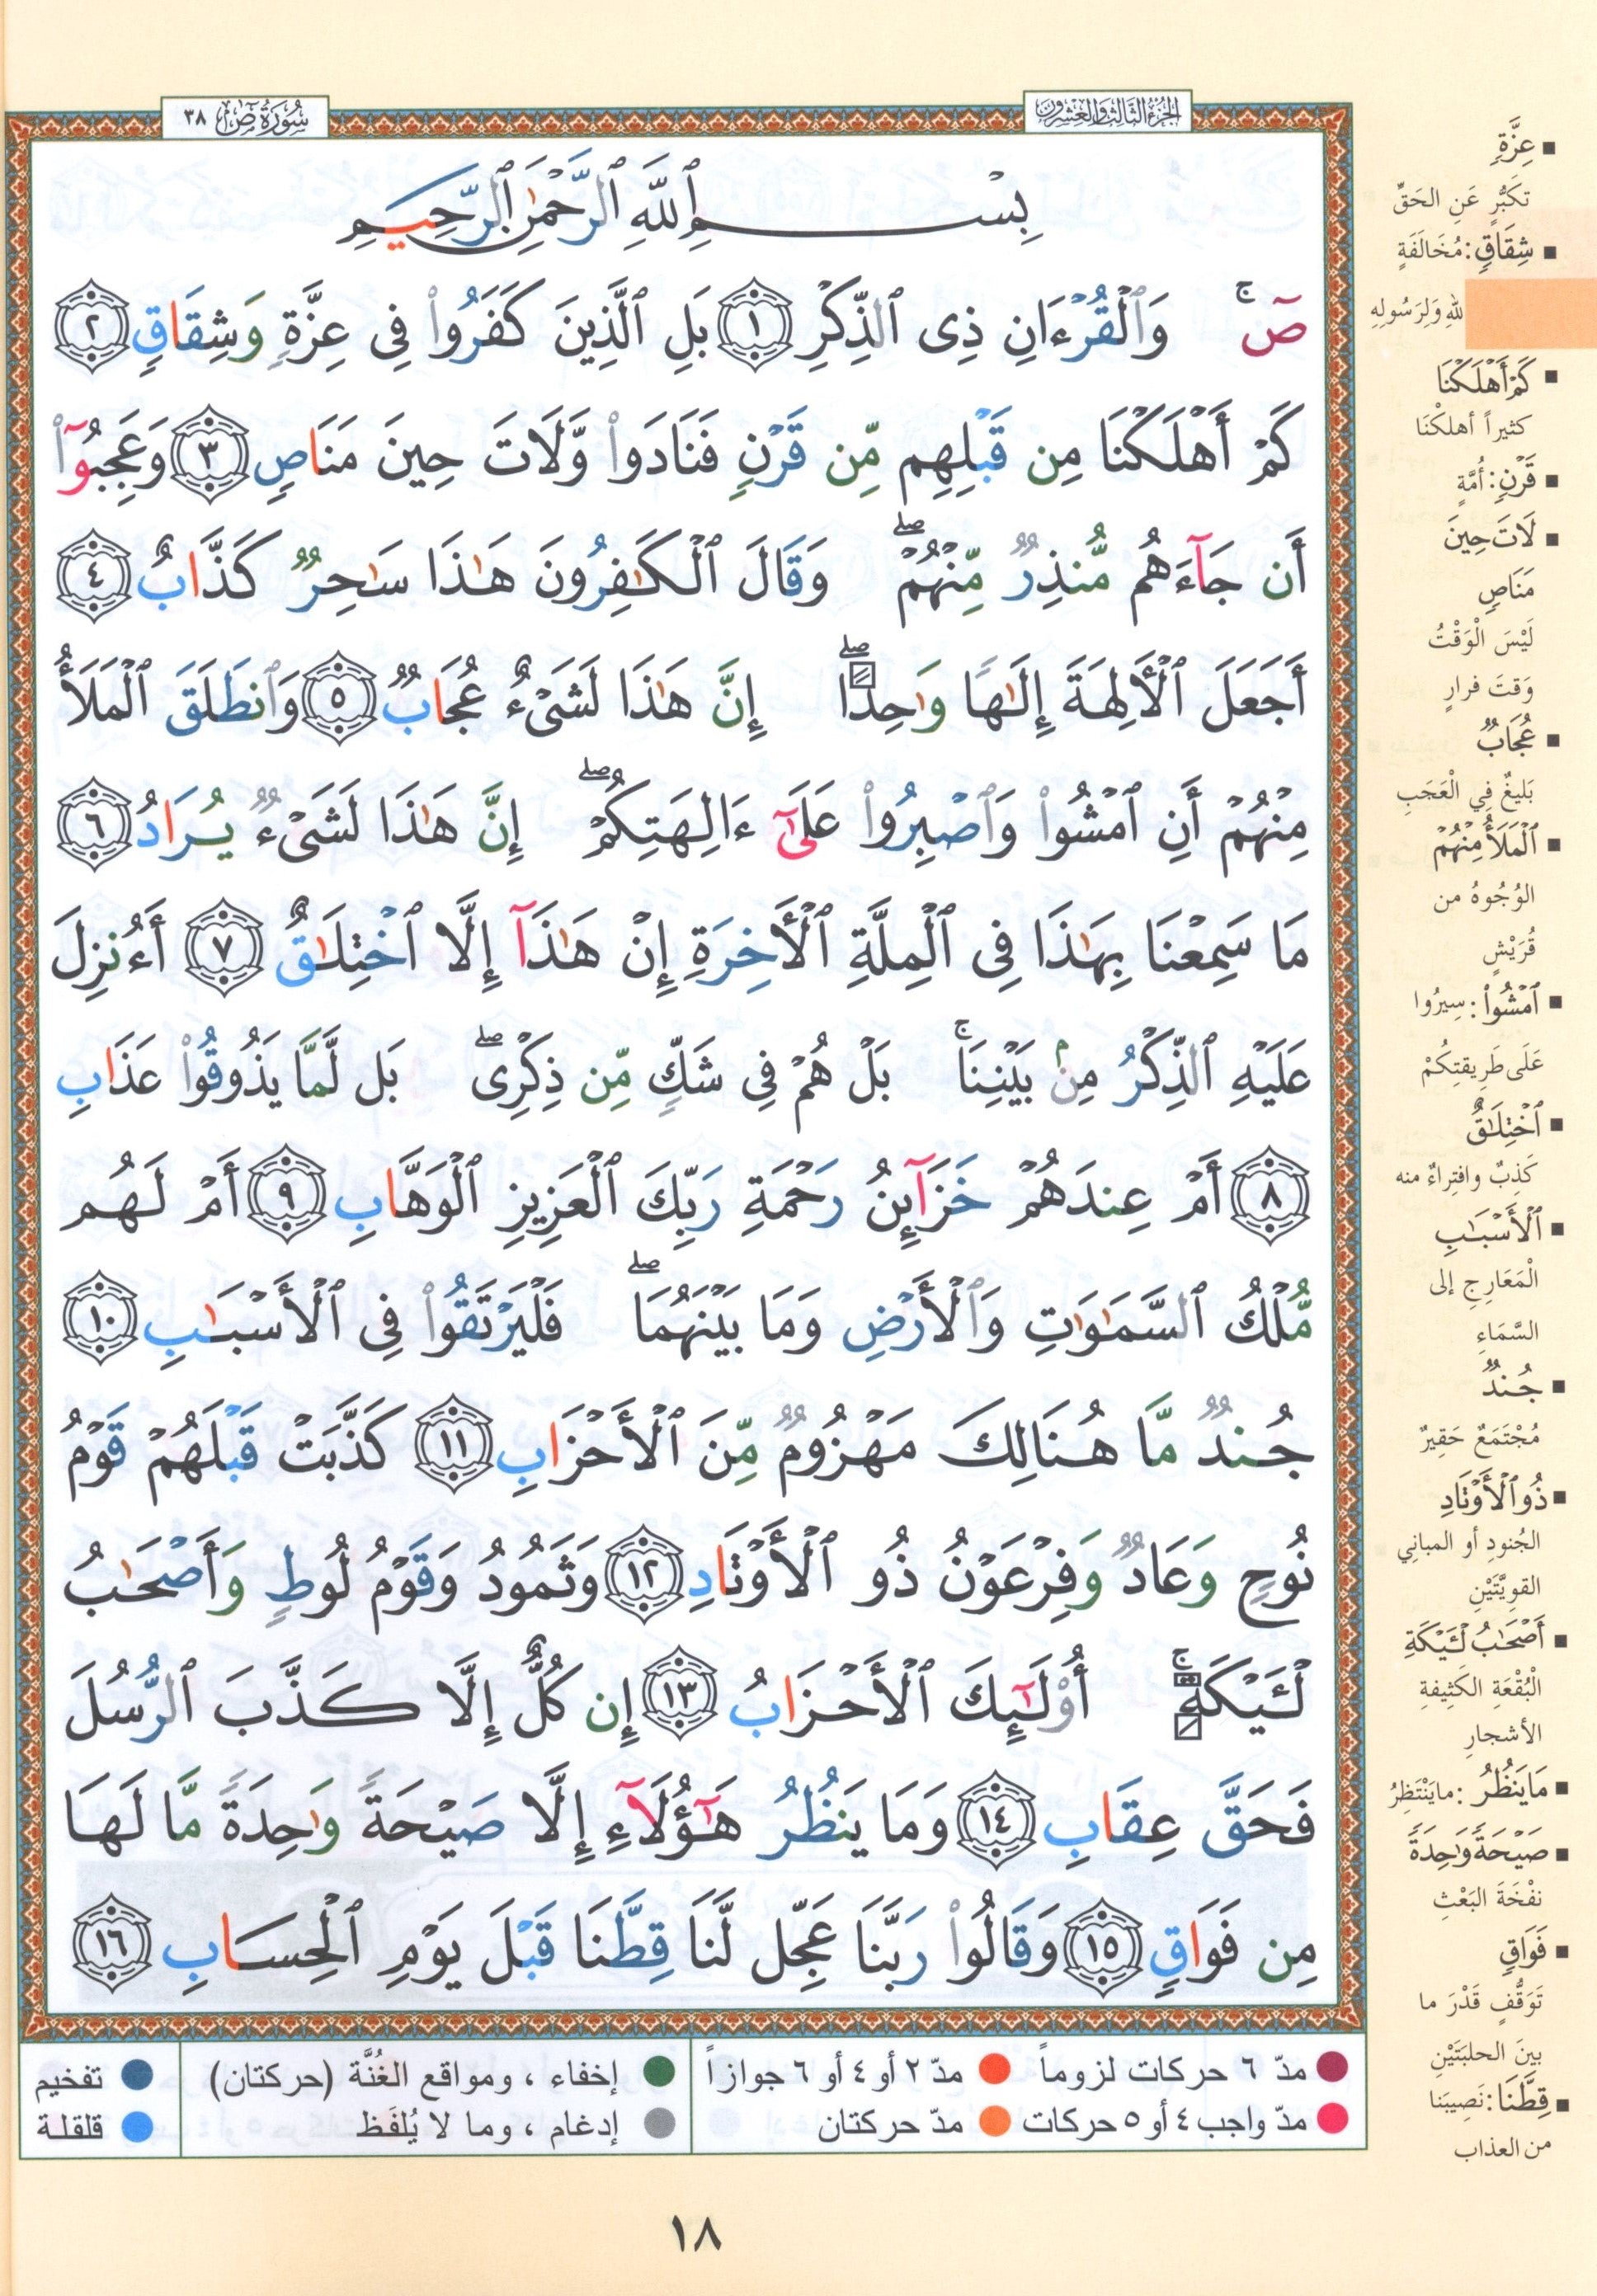 الجزء الثالث والعشرون
سورة ص ٣٨
بِسْمِ ٱللَّهِ ٱلرَّحْمَٰنِ ٱلرَّحِيمِ
صٓ ۚ وَٱلْقُرْءَانِ ذِى ٱلذِّكْرِ ١ بَلِ ٱلَّذِينَ كَفَرُوا۟ فِى عِزَّةٍ وَشِقَاقٍ ٢
كَمْ أَهْلَكْنَا مِن قَبْلِهِم مِّن قَرْنٍ فَنَادَوا۟ وَّلَاتَ حِينَ مَنَاصٍ ٣ وَعَجِبُوٓا۟
أَن جَآءَهُم مُّنذِرٌ مِّنْهُمْ ۖ وَقَالَ ٱلْكَٰفِرُونَ هَٰذَا سَٰحِرٌ كَذَّابٌ ٤
أَجَعَلَ ٱلْأَلِهَةَ إِلَٰهًا وَٰحِدًا ۖ إِنَّ هَٰذَا لَشَىْءٌ عُجَابٌ ٥ وَٱنطَلَقَ ٱلْمَلَأُ
مِنْهُمْ أَنِ ٱمْشُوا۟ وَٱصْبِرُوا۟ عَلَىٰٓ ءَالِهَتِكُمْ ۖ إِنَّ هَٰذَا لَشَىْءٌ يُرَادُ ٦
مَا سَمِعْنَا بِهَٰذَا فِى ٱلْمِلَّةِ ٱلْأَخِرَةِ إِنْ هَٰذَآ إِلَّا ٱخْتِلَٰقٌ ٧ أَءُنزِلَ
عَلَيْهِ ٱلذِّكْرُ مِنۢ بَيْنِنَا ۚ بَلْ هُمْ فِى شَكٍّ مِّن ذِكْرِى ۖ بَل لَّمَّا يَذُوقُوا۟ عَذَابِ
٨ أَمْ عِندَهُمْ خَزَآئِنُ رَحْمَةِ رَبِّكَ ٱلْعَزِيزِ ٱلْوَهَّابِ ٩ أَمْ لَهُم
مُّلْكُ ٱلسَّمَٰوَٰتِ وَٱلْأَرْضِ وَمَا بَيْنَهُمَا ۖ فَلْيَرْتَقُوا۟ فِى ٱلْأَسْبَٰبِ ١٠
جُندٌ مَّا هُنَالِكَ مَهْزُومٌ مِّنَ ٱلْأَحْزَابِ ١١ كَذَّبَتْ قَبْلَهُمْ قَوْمُ
نُوحٍ وَعَادٌ وَفِرْعَوْنُ ذُو ٱلْأَوْتَادِ ١٢ وَثَمُودُ وَقَوْمُ لُوطٍ وَأَصْحَٰبُ
لْـَٔيْكَةِ ۚ أُو۟لَٰٓئِكَ ٱلْأَحْزَابُ ١٣ إِن كُلٌّ إِلَّا كَذَّبَ ٱلرُّسُلَ
فَحَقَّ عِقَابِ ١٤ وَمَا يَنظُرُ هَٰٓؤُلَآءِ إِلَّا صَيْحَةً وَٰحِدَةً مَّا لَهَا
مِن فَوَاقٍ ١٥ وَقَالُوا۟ رَبَّنَا عَجِّل لَّنَا قِطَّنَا قَبْلَ يَوْمِ ٱلْحِسَابِ ١٦
■ عِزَّةٍ
تَكَبُّرٍ عَنِ الحَقِّ
■ شِقَاقٍ: مُخَالَفَةٍ
للهِ وَلِرَسُولِهِ
■ كَمْ أَهْلَكْنَا
كثيراً أهلكْنَا
■ قَرْنٍ: أُمَّةٍ
■ لَاتَ حِينَ
مَنَاصٍ
لَيْسَ الْوَقْتُ
وَقتَ فرارٍ
■ عُجَابٌ
بَليغٌ فِي الْعَجَبِ
■ ٱلْمَلَأُ مِنْهُمْ
الوُجُوهُ من
قُرَيْشٍ
■ ٱمْشُوا۟: سِيرُوا
عَلَى طَرِيقتِكُمْ
■ ٱخْتِلَٰقٌ
كَذِبٌ وافتِراءٌ منه
■ ٱلْأَسْبَٰبِ
الْمَعَارِجِ إلى
السَّمَاءِ
■ جُندٌ
مُجْتَمَعٌ حَقِيرٌ
■ ذُو ٱلْأَوْتَادِ
الجُنودِ أو المباني
القويَّتَيْنِ
■ أَصْحَٰبُ لْـَٔيْكَةِ
الْبُقْعَةِ الكَثِيفةِ
الأشجارِ
■ مَا يَنظُرُ: ما يَنْتَظِرُ
■ صَيْحَةً وَٰحِدَةً
نفْخَةَ البَعْثِ
■ فَوَاقٍ
تَوَقُّفٍ قَدْرَ ما
بينَ الحلبَتَيْنِ
■ قِطَّنَا: نَصِيبَنا
من العذاب
مدّ ٦ حركات لزوماً
مدّ ٢ أو ٤ أو ٦ جوازاً
إخفاء ، ومواقع الغُنَّة (حركتان)
تفخيم
مدّ واجب ٤ أو ٥ حركات
مدّ حركتان
إدغام ، وما لا يُلفَظ
قلقلة
١٨